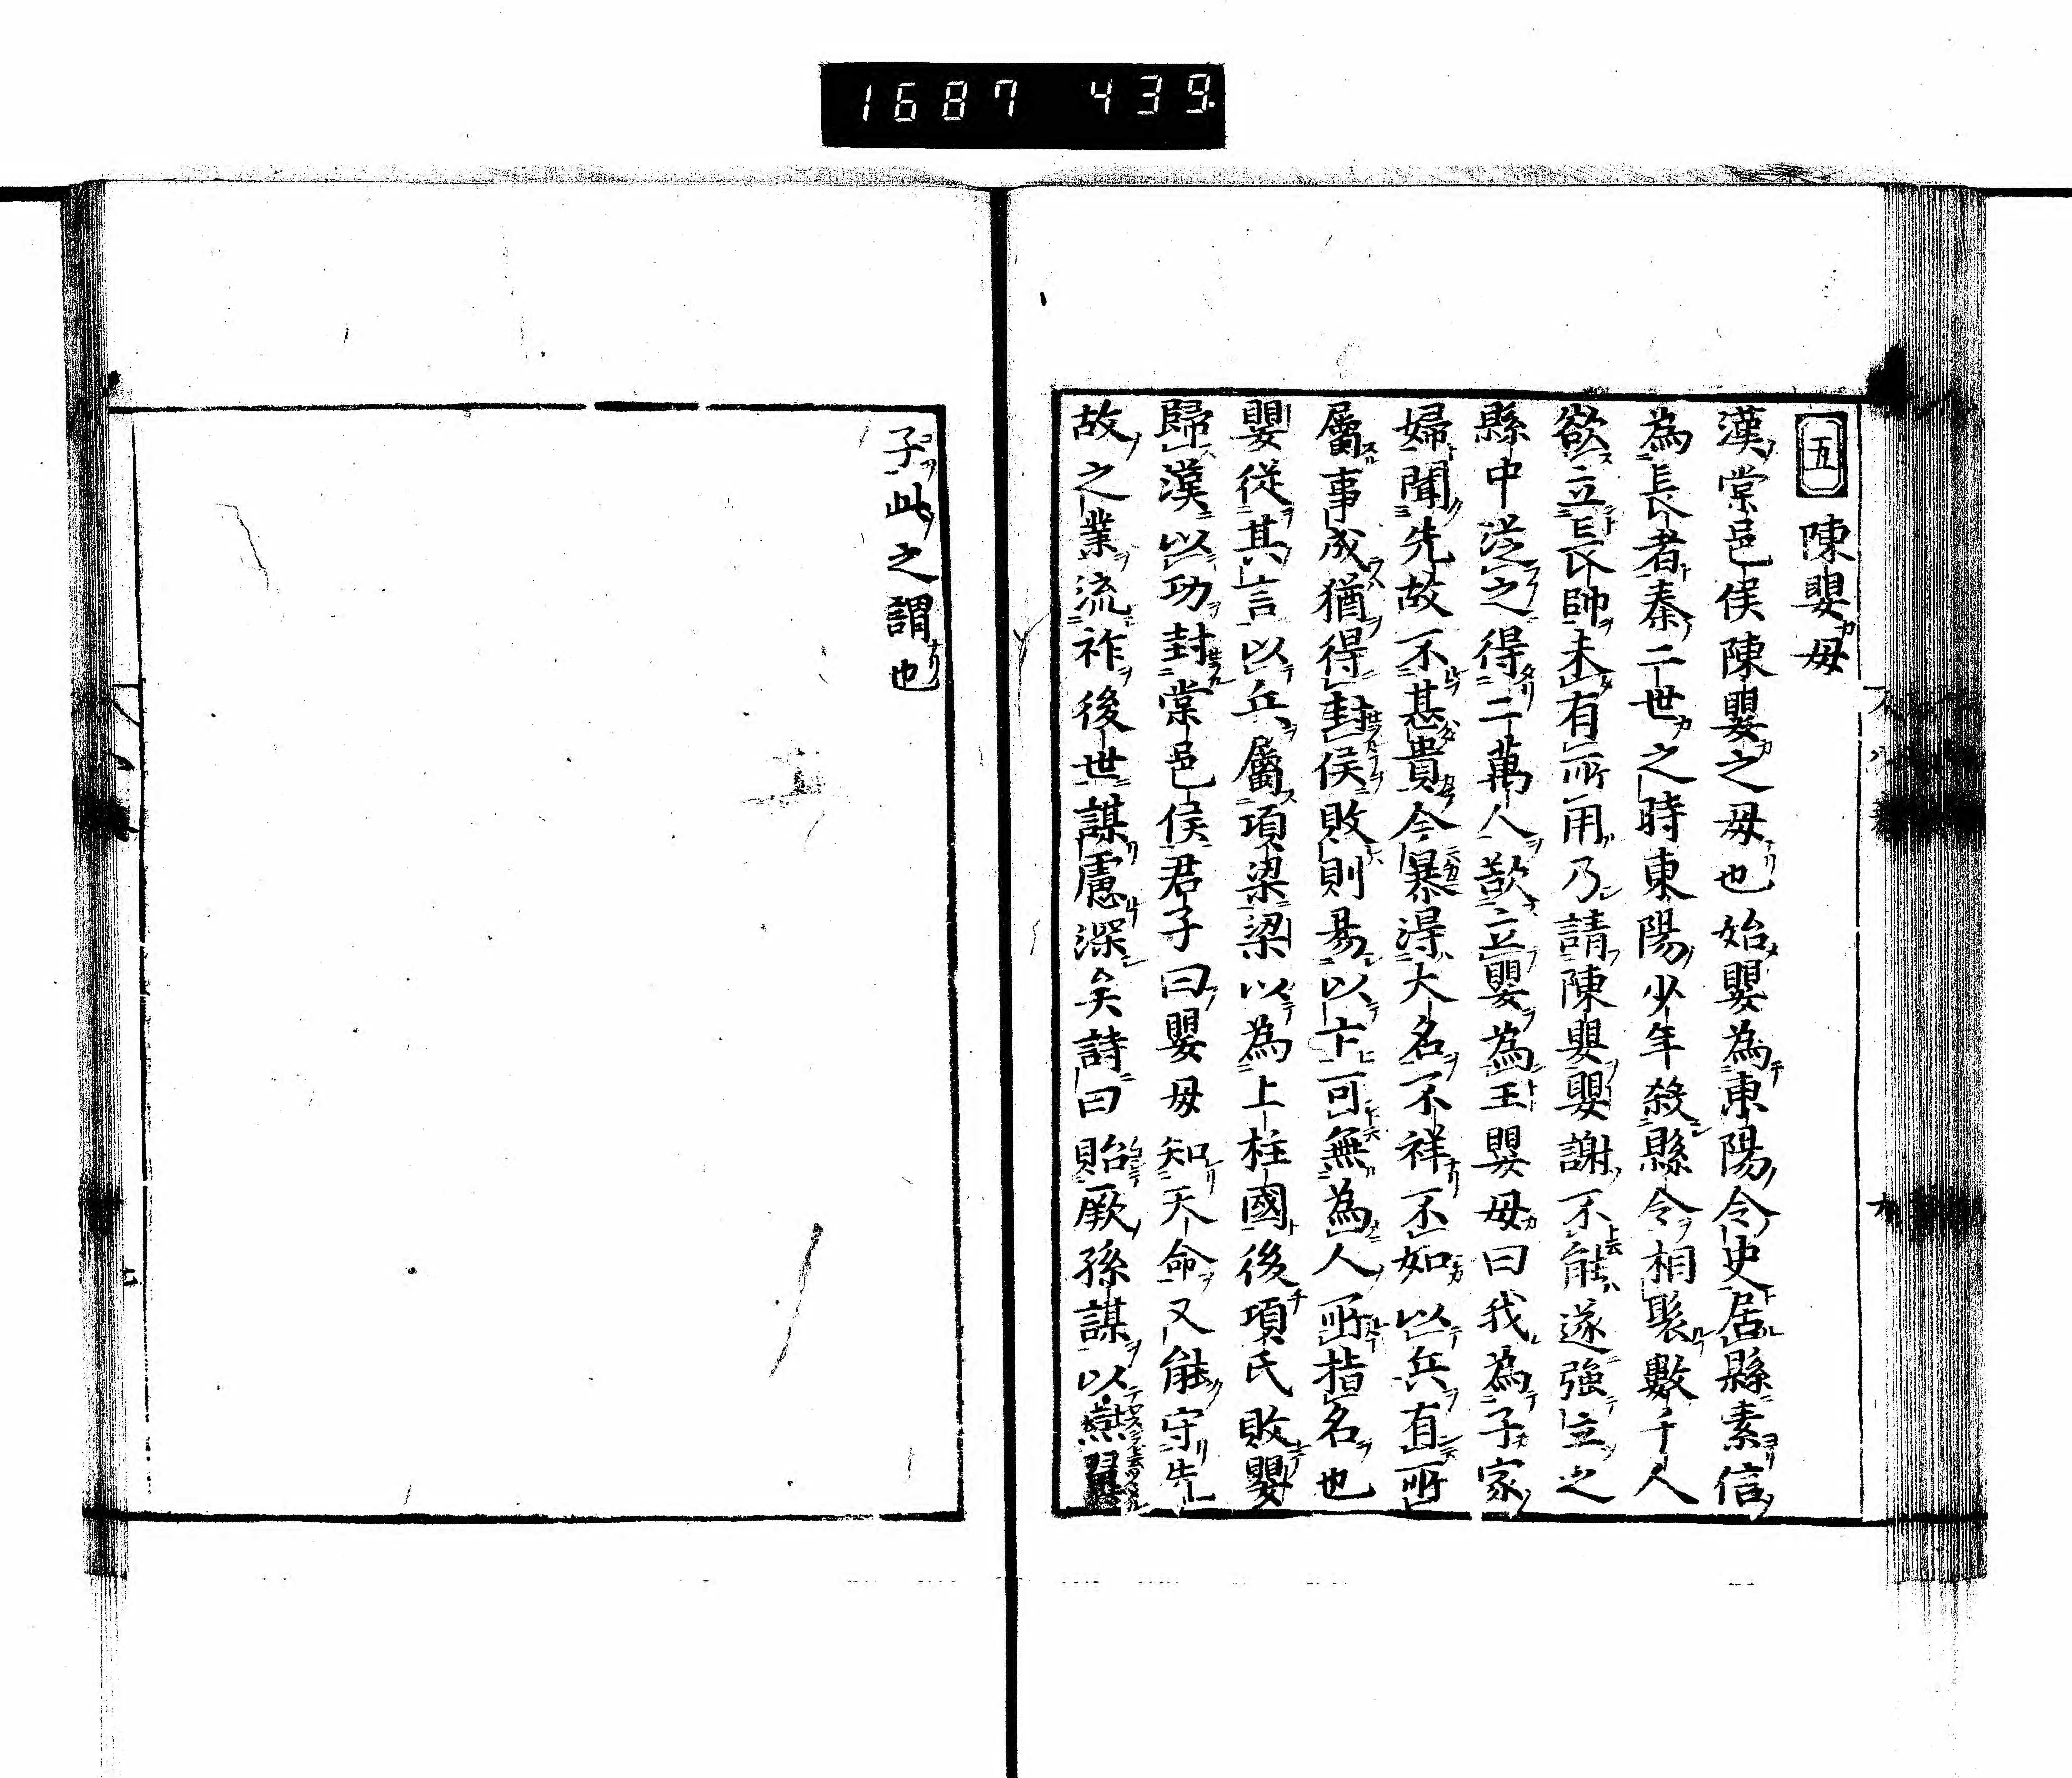 1687 439
五 陳嬰母
漢棠邑侯陳嬰之母也始嬰為東陽令史居縣素信
為長者秦二世之時東陽少年殺縣令相聚數千人
欲立長帥未有所用乃請陳嬰嬰謝不能遂強立之
縣中從之得二萬人欲立嬰為王嬰母曰我為子家
婦聞先故不甚貴今暴得大名不祥不如以兵有所
屬事成猶得封侯敗則易以亡可無為人所指名也
嬰從其言以兵屬項梁梁以為上柱國後項氏敗嬰
歸漢以功封棠邑侯君子曰嬰母知天命又能守先
故之業流祚後世謀慮深矣詩曰貽厥孫謀以燕翼
子此之謂也